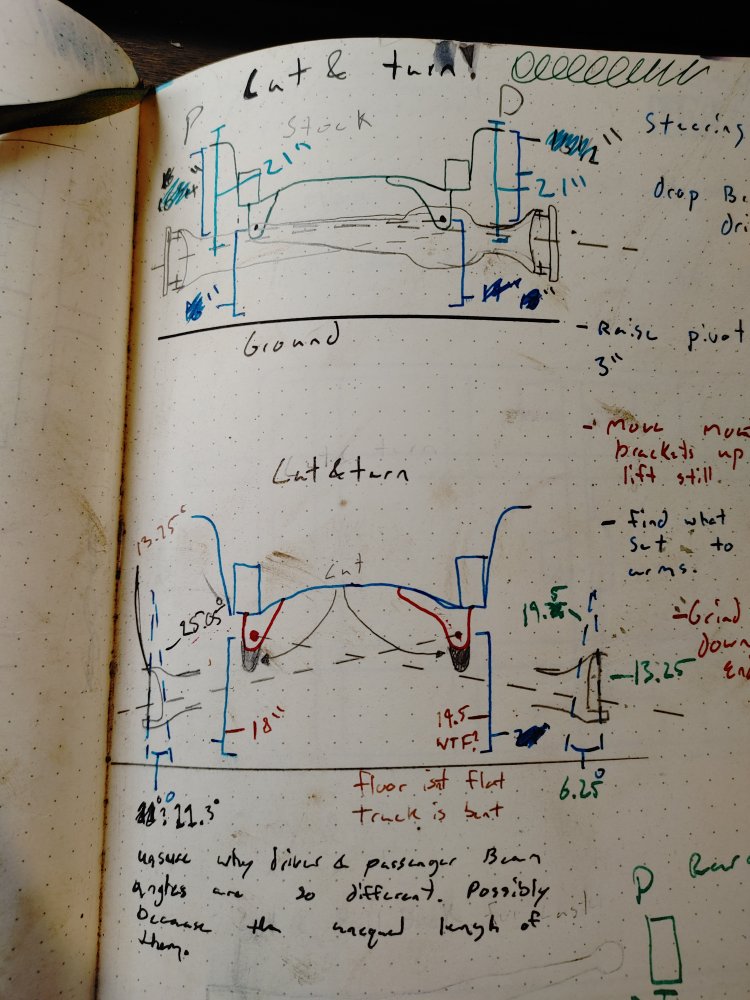 Cut & turn!
P
Stock
D
21"
21"
Steering
drop
Ground
- Raise pivot
3"
- Move
brackets up
lift still.
Cut & turn
- find what
set to
arms.
13.25°
Cut
25.05°
19.5
- Grind
down
13.25
18"
19.5
WTF?
6.25°
11.3°
floor isnt flat
truck is bent
unsure why driver & passenger Beam
angles are so different. Possibly
because the unequal length of
them.
P